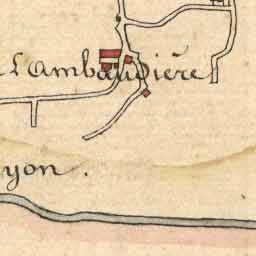 L'Ambaudière
yon.